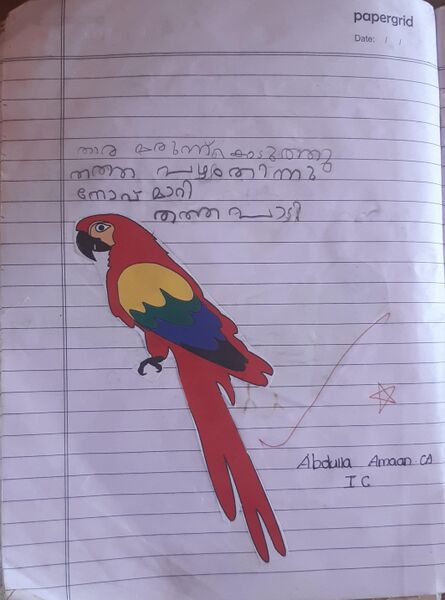 papergrid
Date: / /
താര മരുന്ന് കൊടുത്തു
തത്ത പഴം തിന്നു
നോവ് മാറി
തത്ത പാടി
Abdulla Amaan CA
I C